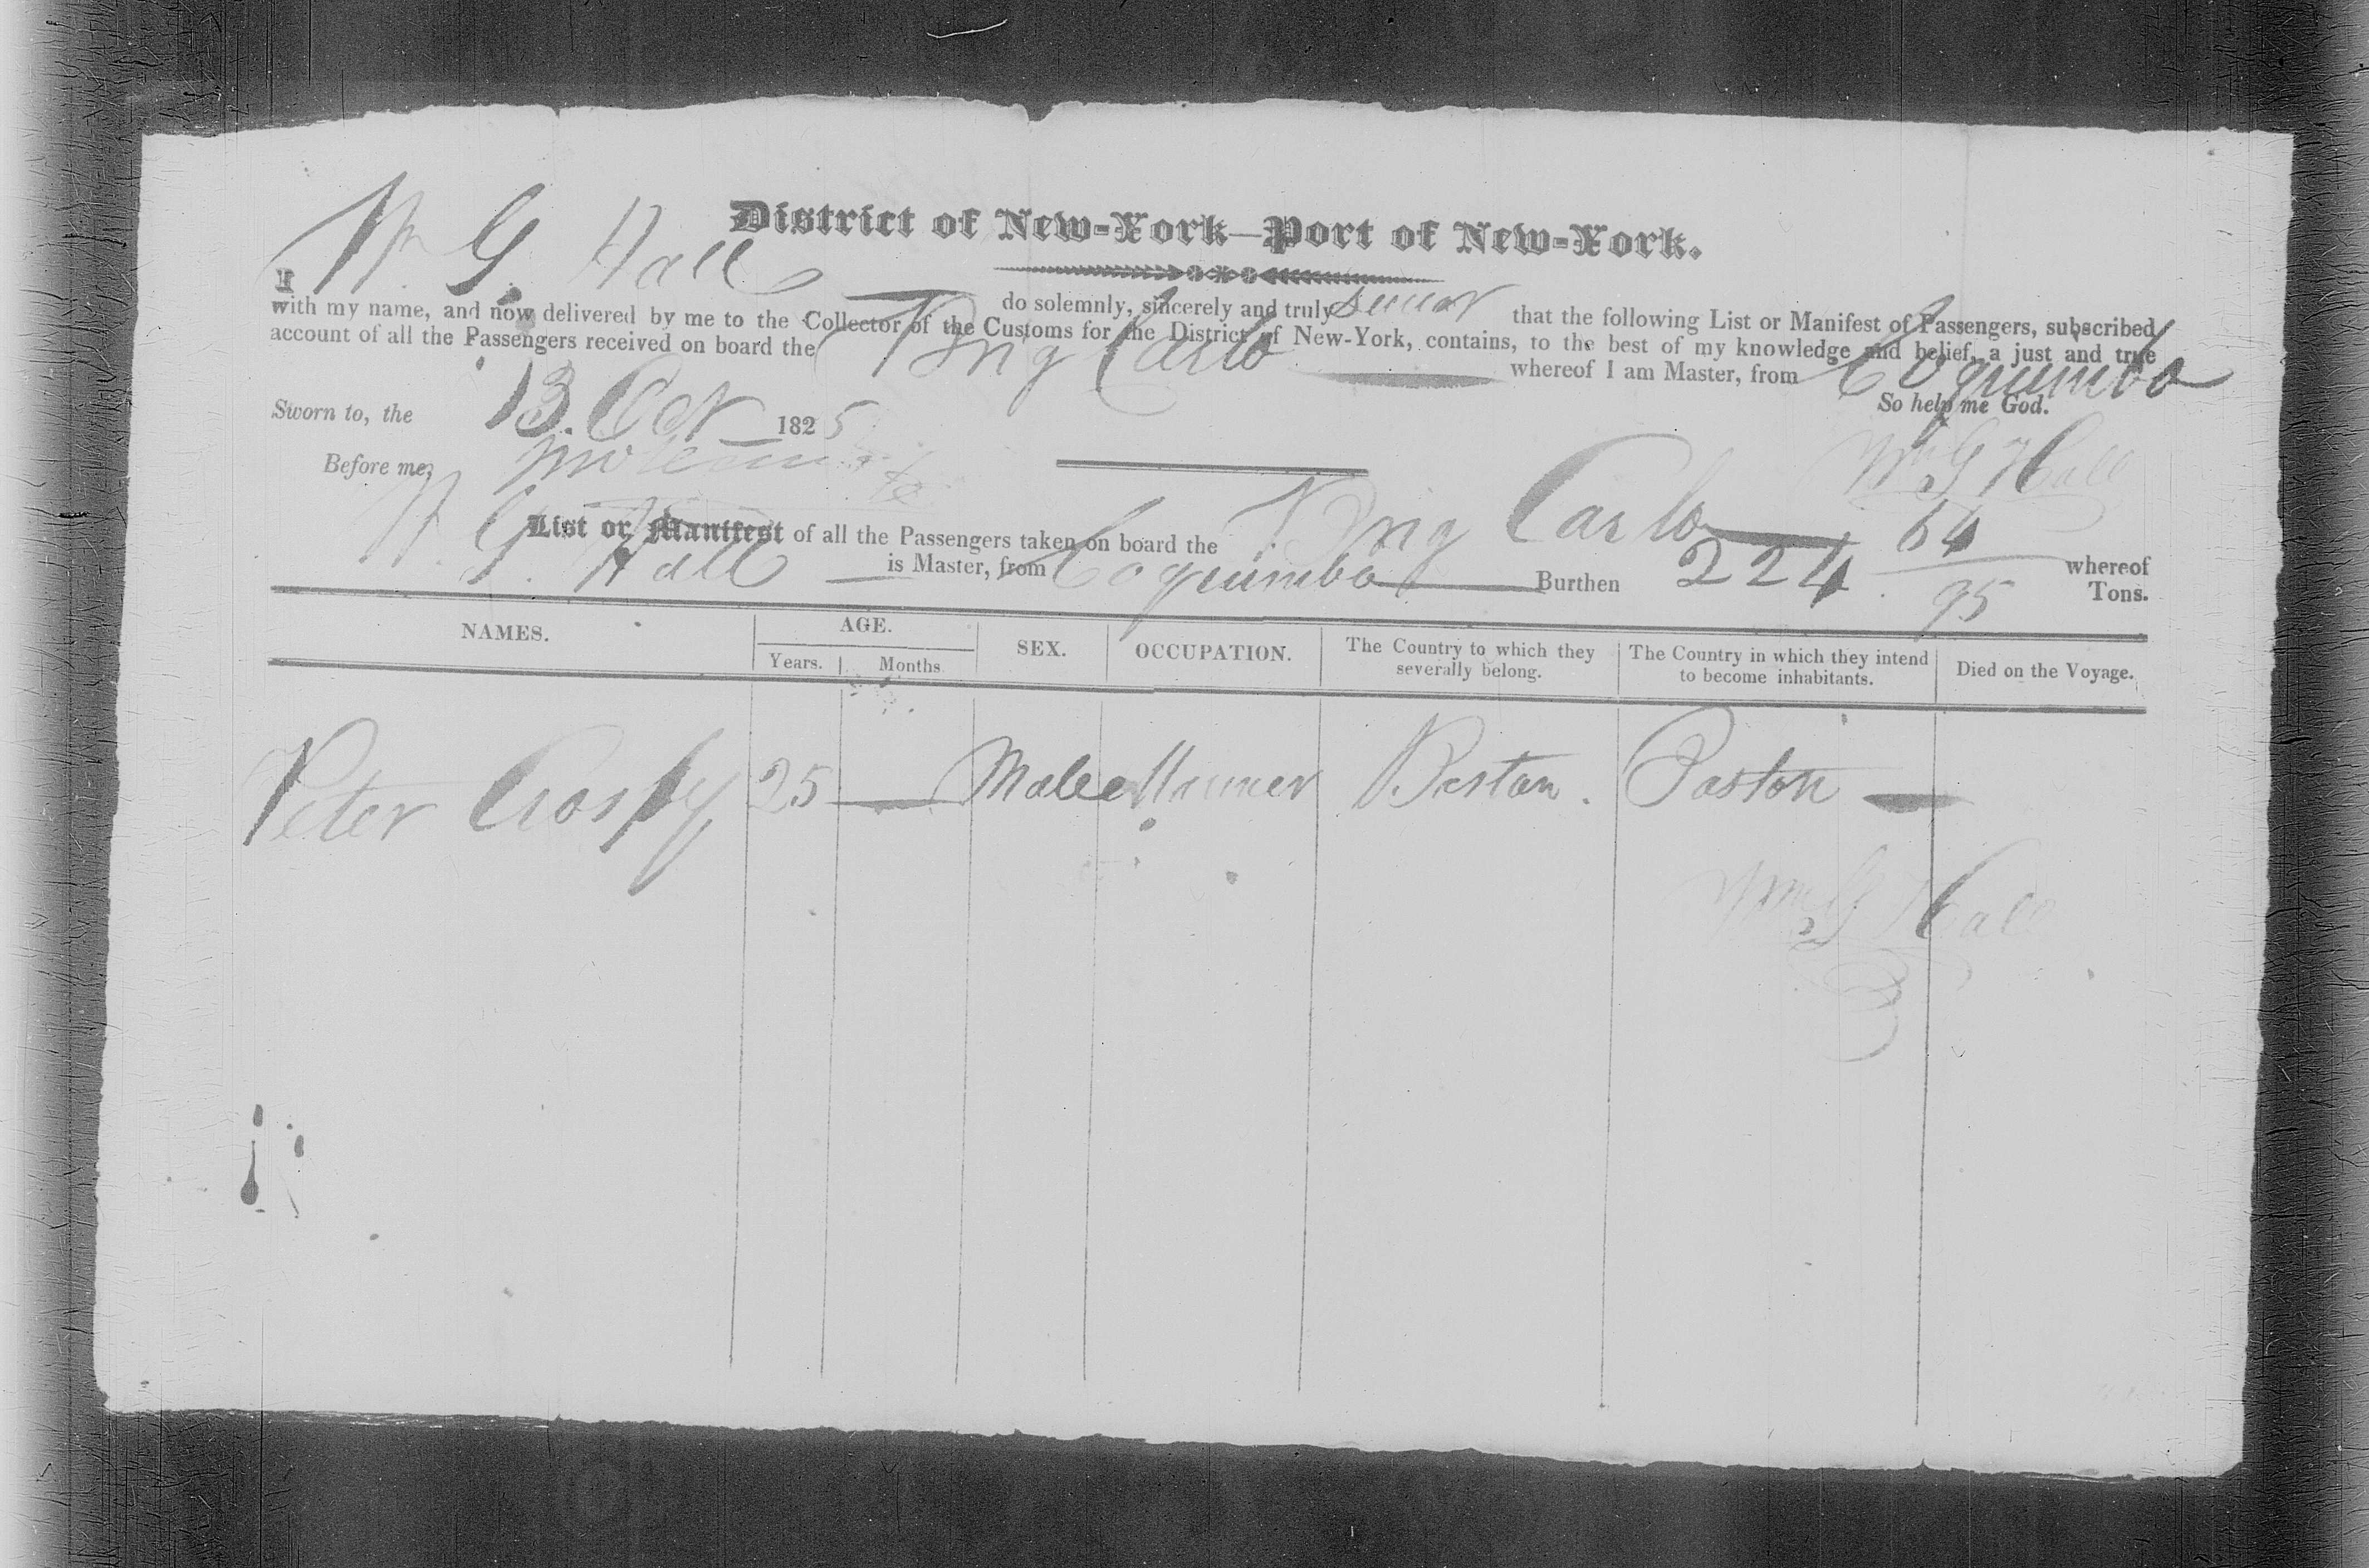 District of New-York—Port of New-York.
I Wm G. Hall do solemnly, sincerely and truly swear that the following List or Manifest of Passengers, subscribed
with my name, and now delivered by me to the Collector of the Customs for the District of New-York, contains, to the best of my knowledge and belief, a just and true
account of all the Passengers received on board the Brig Carlo whereof I am Master, from Coquimbo
So help me God.
Sworn to, the 13. Oct 1825
Wm G Hall
Before me,
List or Manifest of all the Passengers taken on board the Brig Carlo whereof
W. G. Hall is Master, from Coquimbo Burthen 224 64/95 Tons.
NAMES. AGE. SEX. OCCUPATION. The Country to which they severally belong. The Country in which they intend to become inhabitants. Died on the Voyage.
Years. Months
Peter Crosby 25 — Male Mariner Boston. Boston —
Wm G Hall